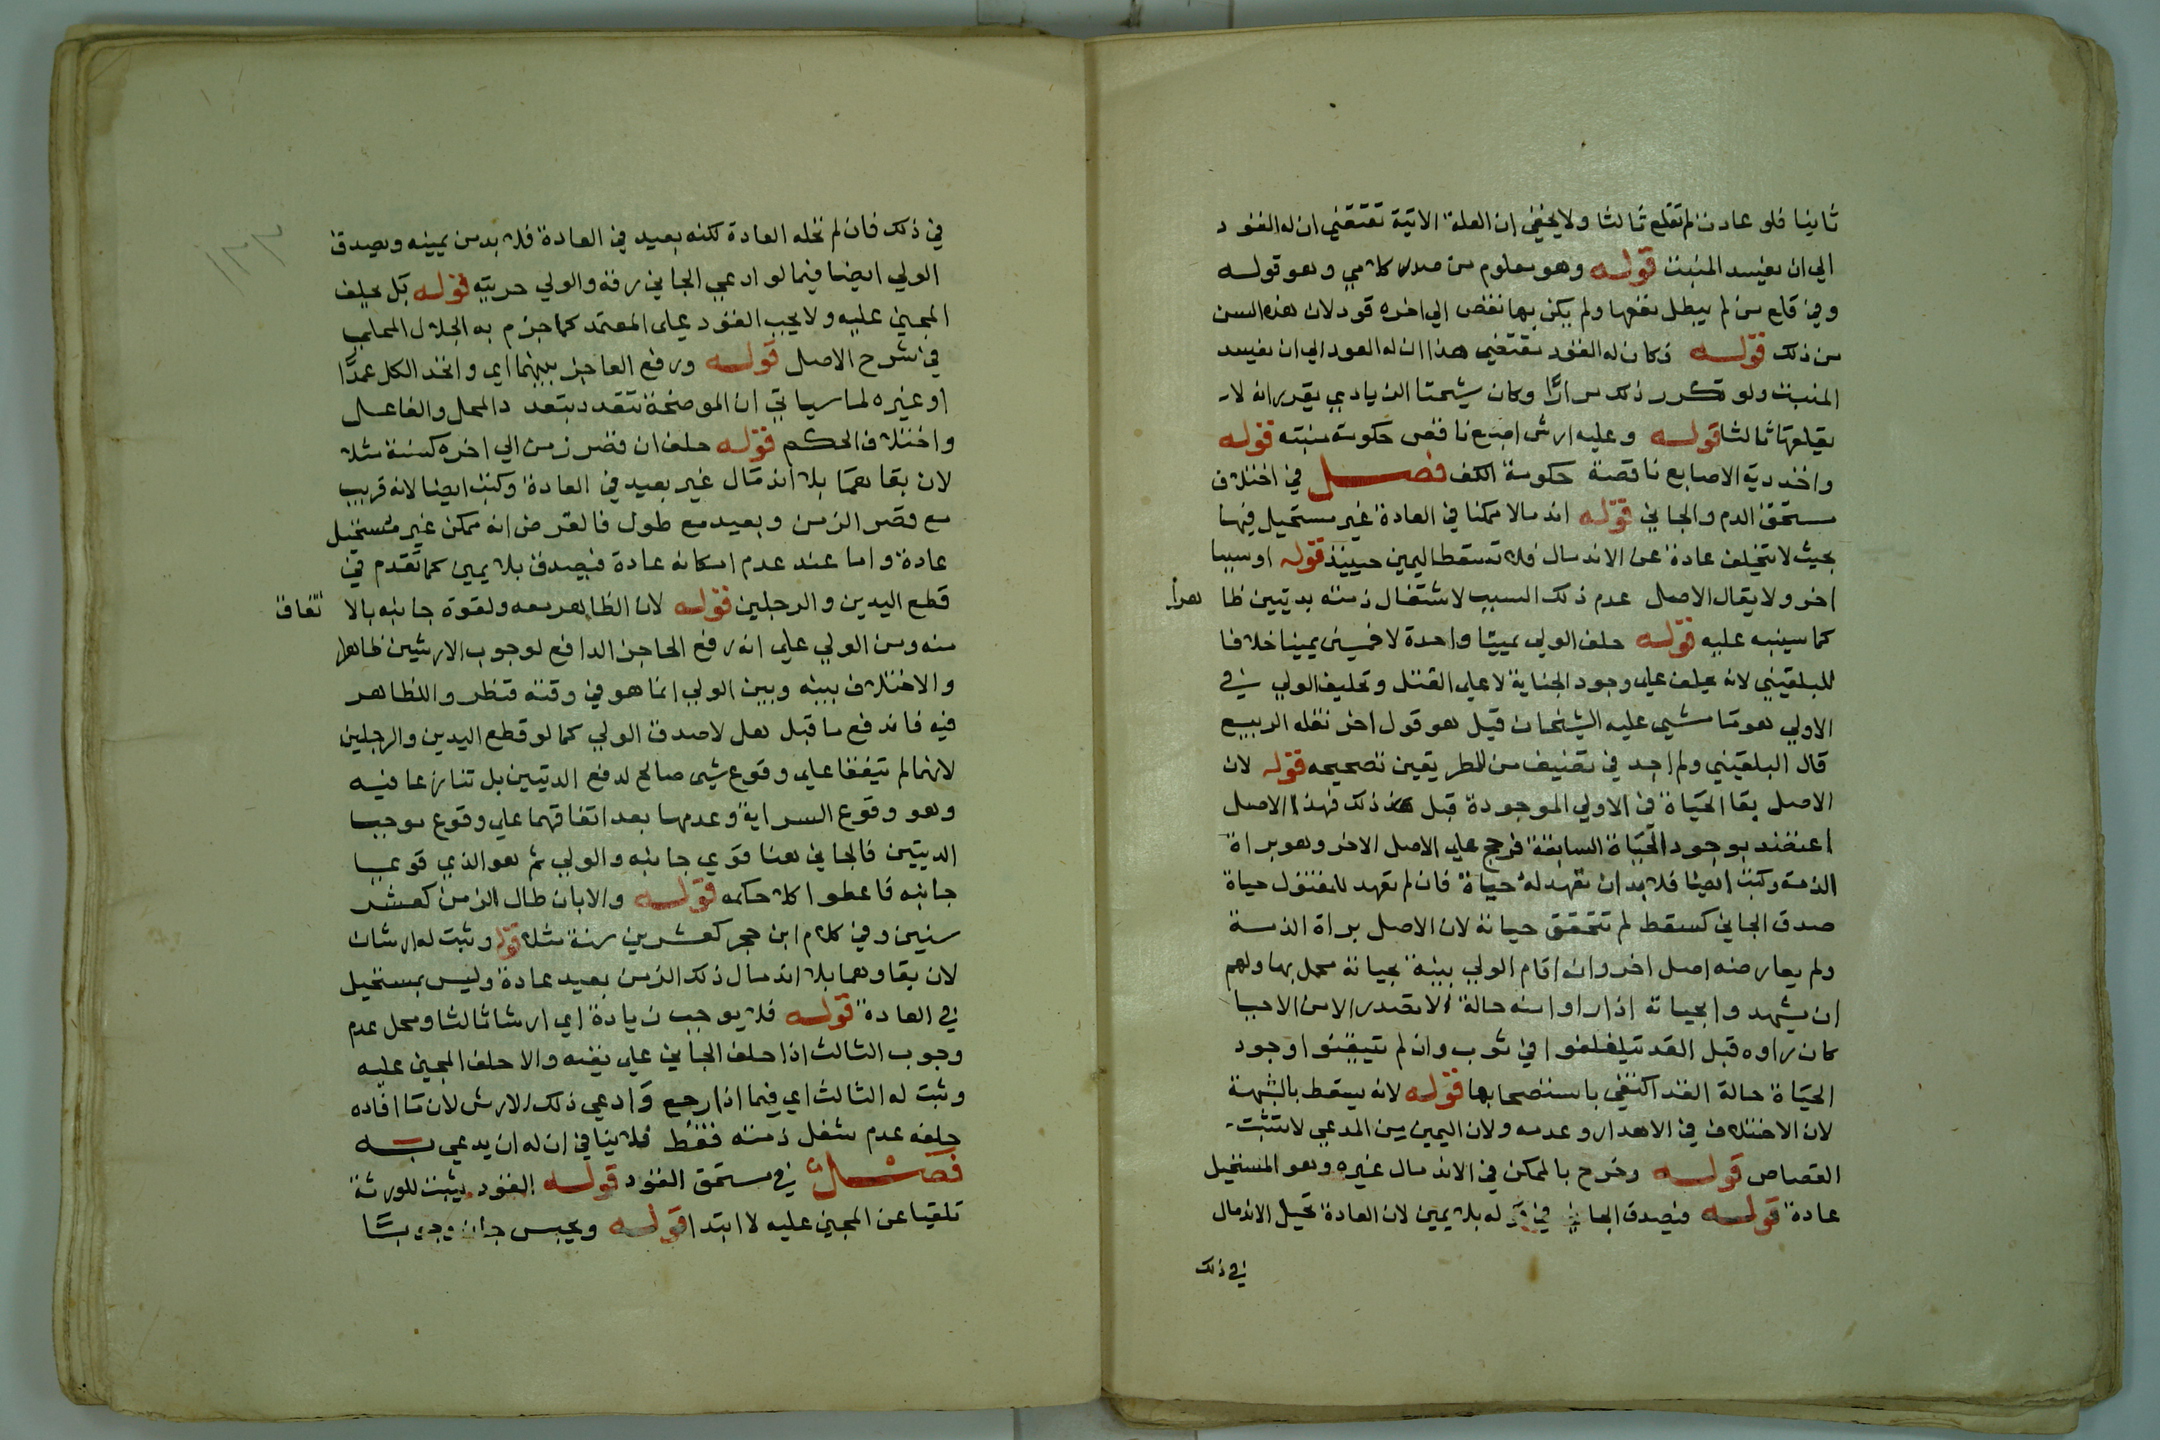 ثانيا فلو عادت لم تقلع ثالثا ولا يخفي ان العلة الاتية تقتضي ان له القود
الي ان يفسد المنبت قوله وهو معلوم من صدر كلامي وهو قوله
وفي قلع سن لم يبطل نفعها ولم يكن بها نقص الي اخره قود لان هذه السن
من ذلك قوله فكان له القود يقتضي هذا ان له العود الي ان يفسد
المنبت ولو تكرر ذلك مرارًا وكان شيخنا الزيادي يقرر انه لا
يقلعها ثالثا قوله وعليه ارش اصبع ناقص حكومة منبته قوله
واخذ دية الاصابع ناقصة حكومة الكف فصل في اختلاف
مستحق الدم والجاني قوله اندمالا ممكنا في العادة غير مستحيل فيها
بحيث لا تتخلف عادة عن الاندمال فلا تسقط اليمين حينيذ قوله او سببا
اخر ولا يقال الاصل عدم ذلك السبب لاشتغال ذمته بديتين ظاهرا
كما سينبه عليه قوله حلف الولي يمينا واحدة لا خمسين يمينا خلافا
للبلقيني لانه يحلف علي وجود الجناية لا علي القتل وتحليف الولي في
الاولي هو ما مشي عليه الشيخان قيل هو قول اخر نقله الربيع
قال البلقيني ولم اجد في تصنيف من الطريقين تصحيحه قوله لان
الاصل بقا الحياة في الاولي الموجودة قبل ذلك فهذا الاصل
اعتضد بوجود الحياة السابقة فرجح علي الاصل الاخر وهو براة
الذمة وكتب ايضا فلا بد ان تعهد له حياة فان لم تعهد للمقتول حياة
صدق الجاني كسقط لم تتحقق حياته لان الاصل براة الذمة
ولم يعارضه اصل اخر وانه اقام الولي بينة بحياته عمل بها ولهم
ان يشهدوا بحياته اذا راوا منه حالة لا تصدر الا من الاحيا
كان راوه قبل القد تيلفلفوا في ثوب وان لم تتيقنوا وجود
الحياة حالة القد اكتفي باستصحابها قوله لانه يسقط بالشبهة
لان الاختلاف في الاهدار وعدمه ولان اليمين من المدعي لا تثبت
القصاص قوله وخرج بالممكن في الاندمال غيره وهو المستحيل
عادة قوله فيصدق الجاني في قوله بلا يمين لان العادة تحيل الاندمال
في ذلك
في ذلك فان لم تحله العادة لكنه بعيد في العادة فلا بد من يمينه ويصدق
الولي ايضا فيما لو ادعي الجاني رقه والولي حريته قوله بل يحلف
المجني عليه ولا يجب القود علي المعتمد كما جزم به الجلال المحلي
في شرح الاصل قوله ورفع الحاجز بينهما اي واتحد الكل عمدًا
او غيره لما سياتي ان الموضحة تتعدد بتعدد المحل والفاعل
واختلاف الحكم قوله حلف ان قصر زمن الي اخره كسنة مثلا
لان بقاهما بلا اندمال غير بعيد في العادة وكتب ايضا لانه قريب
مع قصر الزمن وبعيد مع طول فالفرض انه ممكن غير مستحيل
عادة واما عند عدم امكانه عادة فيصدق بلا يمين كما تقدم في
قطع اليدين والرجلين قوله لان الظاهر معه ولقوة جانبه بالاتفاق
منه ومن الولي علي انه رفع الحاجز الدافع لوجوب الارشين ظاهرا
والاختلاف بينه وبين الولي انما هو في وقته فتظر والظاهر
فيه فاندفع ما قيل هل لا صدق الولي كما لو قطع اليدين والرجلين
لانهما لم يتفقا علي وقوع شي صالح لدفع الديتين بل تنازعا فيه
وهو وقوع السراية وعدمها بعد اتفاقهما علي وقوع موجب
الديتين فالجاني هنا قوي جانبه والولي ثم هو الذي قوي
جانبه فاعطوا كلا حكمه قوله والا بان طال الزمن كعشر
سنين وفي كلام ابن حجر كعشرين سنة مثلا قوله وثبت له ارشان
لان بقاوهما بلا اندمال ذلك الزمن بعيد عادة وليس بمستحيل
في العادة قوله فلا يوجب زيادة اي ارشا ثالثا ومحل عدم
وجوب الثالث اذا حلف الجاني علي نفيه والا حلف المجني عليه
وثبت له الثالث اي فيما اذا رجع وادعي ذلك الارش لان ما افاده
حلفه عدم شغل ذمته فقط فلا ينافي ان له ان يدعي به
فصل في مستحق القود قوله القود يثبت للورثة
تلقيا عن المجني عليه لا ابتدا قوله ويحبس جان وجوبًا
١٣٣